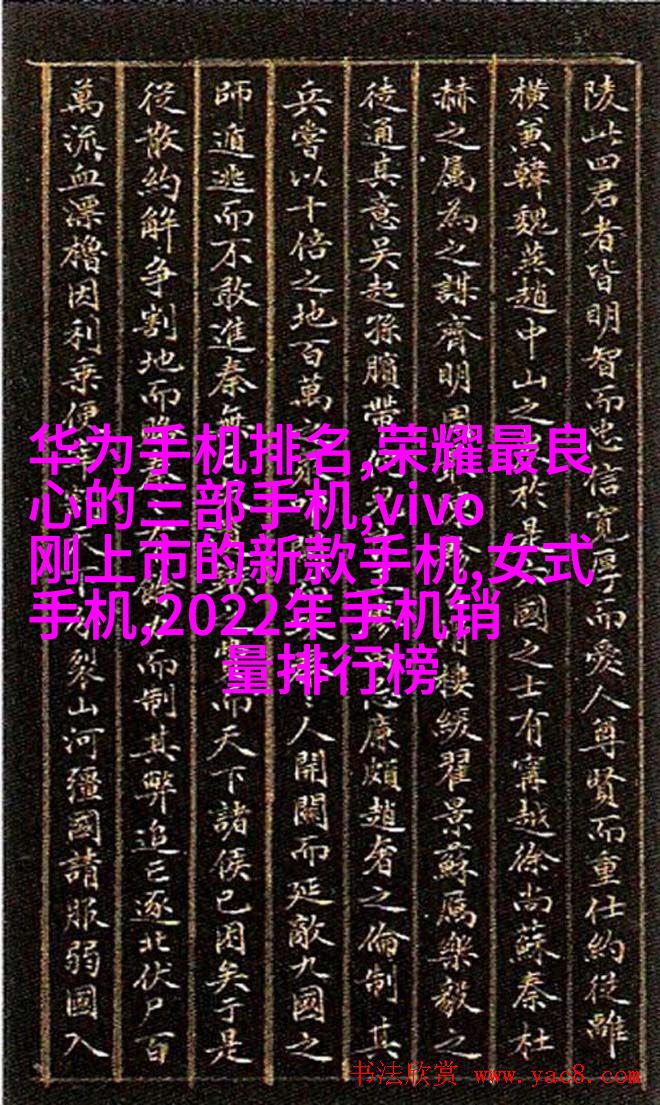 陵此四君者皆明智而忠信寬厚而愛人尊賢而重仕約從離
橫兼韓魏燕趙中山之於是國之士有甯越徐尚蘇秦杜
赫之属為之謀齊明周樓緩翟景蘇厲樂毅之
徒通其意吳起孫臏帶廉頗趙奢之倫制其
兵嘗以十倍之地百萬人開關而延敵九國之
師遁逃而不敢進秦無而天下諸侯已困矣于是
從散約解爭割地而賂秦而制其弊追亡逐北伏尸百
萬流血漂櫓因利乘便裂山河彊國請服弱國入
华为手机排名,荣耀最良
心的三部手机,vivo
刚上市的新款手机,女式
手机,2022年手机销
量排行榜
书法欣赏 www.yac8.com